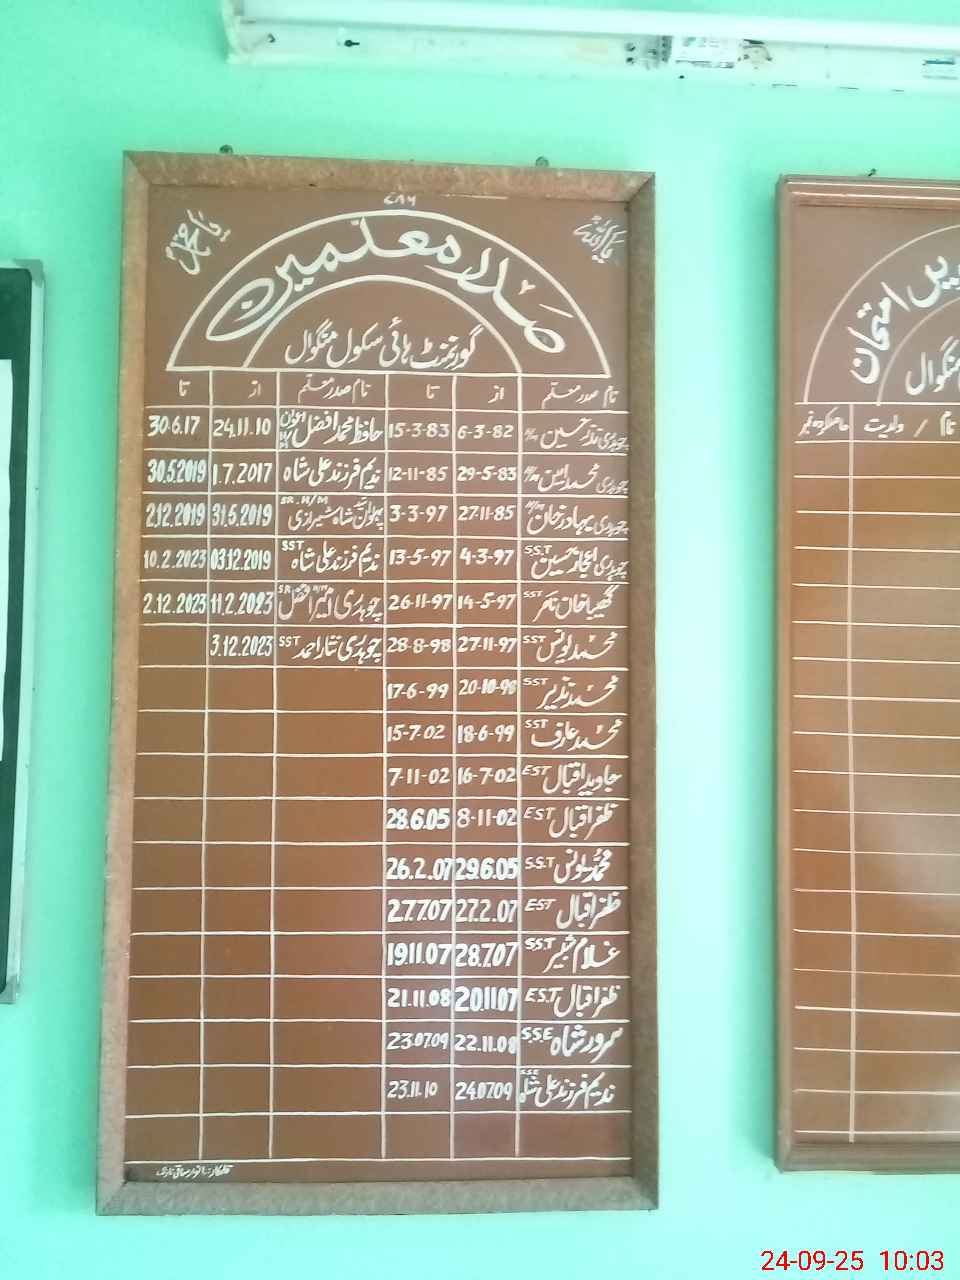 ۷۸۶
یا اللہ
یا محمد
صدر معلمین
گورنمنٹ ہائی سکول منگوال
نام صدر معلم از تا نام صدر معلم از تا
چوہدری نذر حسین H/M 6-3-82 15-3-83 حافظ محمد افضل اعوان H/M 24.11.10 30.6.17
چوہدری محمد H/M 29-5-83 12-11-85 ندیم فرزند علی شاہ 1.7.2017 30.5.2019
چوہدری بہادر خان H/M 27-11-85 3-3-97 شاہ شیرازی SR. H/M 31.5.2019 2.12.2019
چوہدری اعجاز حسین S.S.T 4-3-97 13-5-97 ندیم فرزند علی شاہ SST 03.12.2019 10.2.2023
خان SST 14-5-97 26-11-97 چوہدری امیر افضل SR H/M 11.2.2023 2.12.2023
محمد یونس SST 27-11-97 28-8-98 چوہدری نثار احمد SST 3.12.2023
محمد نذیر SST 20-10-98 17-6-99
محمد عارف SST 18-6-99 15-7-02
جاوید اقبال EST 16-7-02 7-11-02
ظفر اقبال EST 8-11-02 28.6.05
محمد یونس S.S.T 29.6.05 26.2.07
ظفر اقبال EST 27.2.07 27.7.07
غلام شبیر S.S.T 28.7.07 19.11.07
ظفر اقبال E.S.T 20.11.07 21.11.08
سرور شاہ S.S.E 22.11.08 23.07.09
ندیم فرزند علی شاہ S.S.E 24.07.09 23.11.10
امتحان
منگوال
نام / ولدیت حاصل کردہ نمبر
24-09-25 10:03